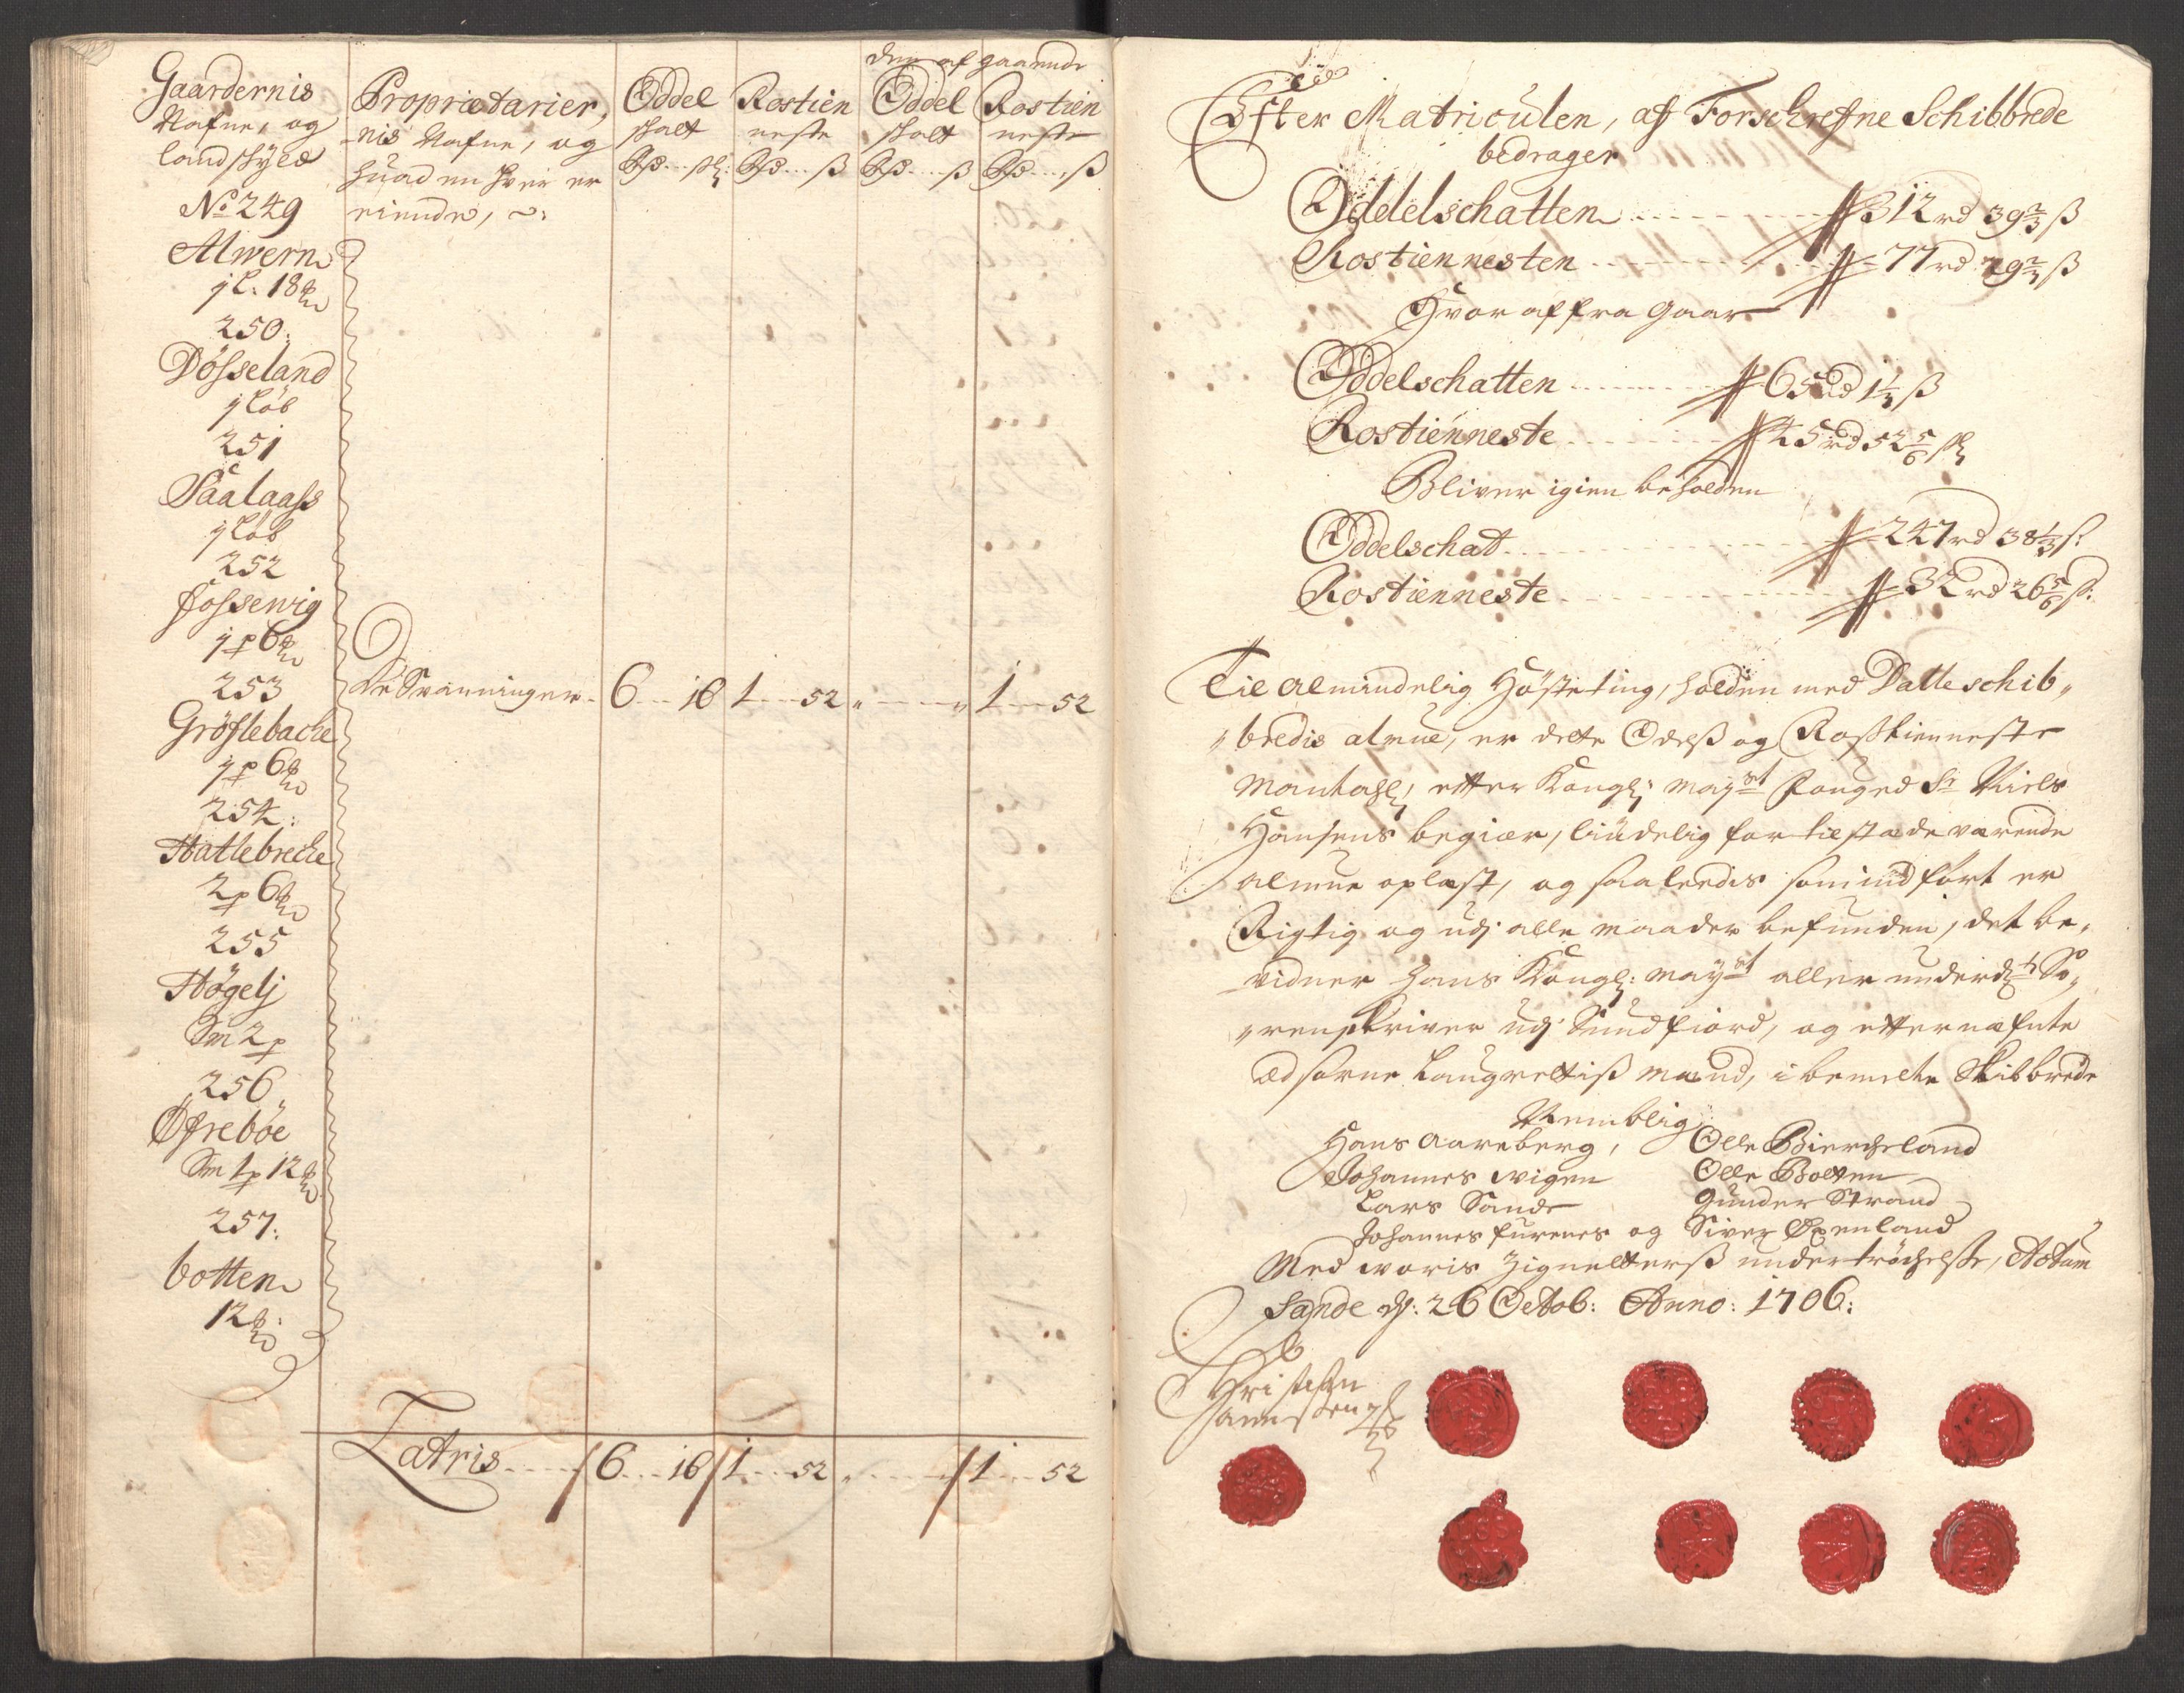 Gaardernis
Nafne, og
landskyld
Proprietarier,
nis Nafne, og
huad en hver er
eiende,
Oddel
skatt
Rostien
neste
der af gaaende
Oddel
skatt
Rostien
neste
No 249
Alwern
1 L: 18
250:
Dösseland
1 Löb
251
Saalaass
1 Löb
252
Fossewig
1 p 6
253
Gröslebache
1 p 6
De Svanninger 6 16 1 52 1 52
254:
Hatlebreche
2 p 6
255
Högelj
Sm 2 p
256
Öfrebøe
Sm 1 p 12
257:
botten
12
Latris 6 16 1 52 1 52
Efter Matriculen, af Forschrefne Schibbrede
bedrager
Oddelschatten 312 rd 39 2/3 ß
Rostiennesten 77 rd 79 2/3 ß
Hvor af fra gaar
Oddelschatten 65 rd 1 1/3 ß
Rostienneste 45 rd 52 5/6 ß
Bliver igien beholden
Oddelschat 247 rd 38 1/3 ß
Rostienneste 32 rd 26 5/6 ß:
Til almindelig Höste ting, holden med Datleschib,,
,,bredis almue, er dette Odelß og Rosstienneste
Mantahl, efter Kongl: Mayst Fouged Sr Niels
Hansens begiær, liudelig for tilstæde værende
almue oplæst, og saaledis som indfört er
Rigtig og udj alle maader befunden, det be,
vidner hans Kongl: Mayst aller underd: So,
,,renskriver udj Sundfiord, og efternefnte
Edsorne Laugrettiß mænd, i bemelte Skibbrede
Nemblig
Hans Aareberg, Olle Biercheland
Johannes wigen Olle Botten
Lars Sande Gunder Strand
Johannes furenes og Siver Øxenland
Med woris Zignetterß undertröchelse, Actum
Sande d: 26 Octob: Anno: 1706: